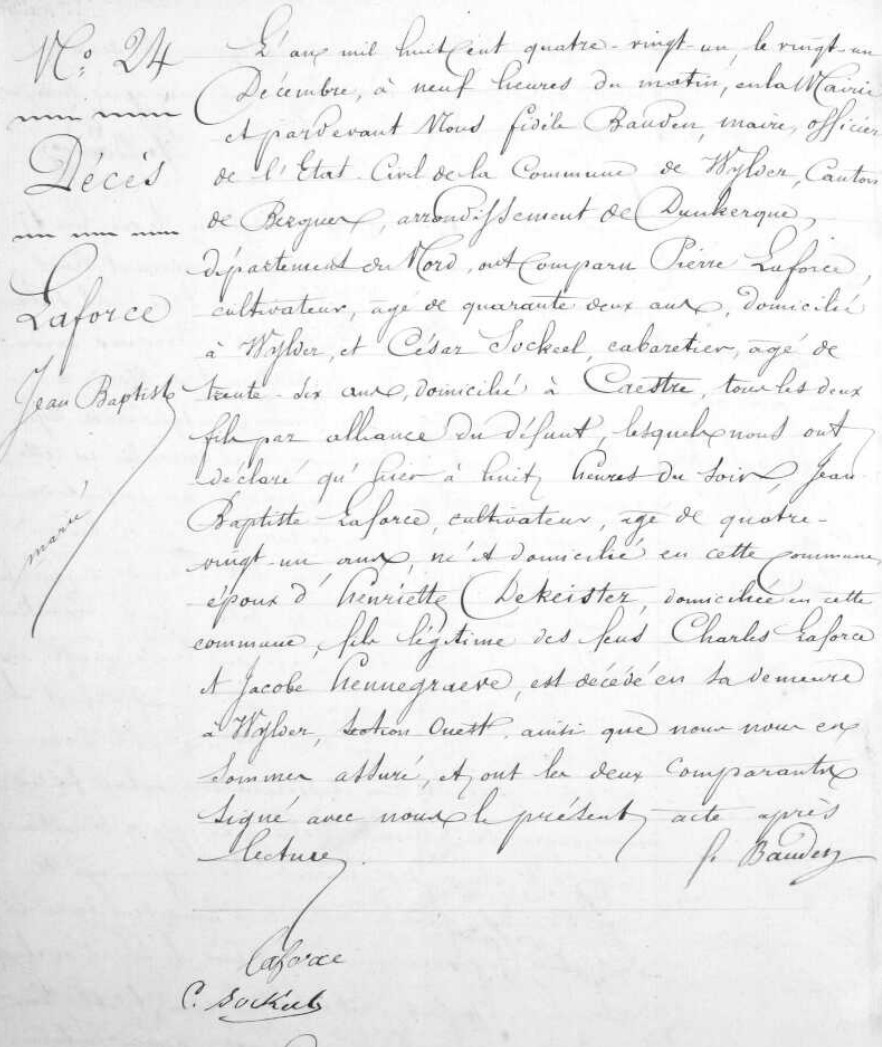 N.º 24
Décès
Laforce
Jean Baptiste
marié
L'an mil huit cent quatre-vingt-un, le vingt-un
Décembre, à neuf heures du matin, en la Mairie
et pardevant Nous fidèle Bauden, maire, officier
de l'Etat-Civil de la Commune de Wylder, Canton
de Bergues, arrondissement de Dunkerque,
département du Nord, ont Comparu Pierre Laforce,
cultivateur, âgé de quarante deux ans, domicilié
à Wylder, et César Sockeel, cabaretier, âgé de
trente-six ans, domicilié à Caestre, tous les deux
fils par alliance du défunt, lesquels nous ont
déclaré qu'hier à huit heures du soir, Jean
Baptiste Laforce, cultivateur, âgé de quatre-
vingt-un ans, né et domicilié en cette Commune
époux d'henriette Dekeister, domiciliée en cette
commune, fils légitime des feus Charles Laforce
et Jacobe hennegraeve, est décédé en sa demeure
à Wylder, section Ouest, ainsi que nous nous en
sommes assuré, et ont les deux Comparants
signé avec nous le présent acte après
lecture.
f. Bauden
Laforce
C. Sockeel